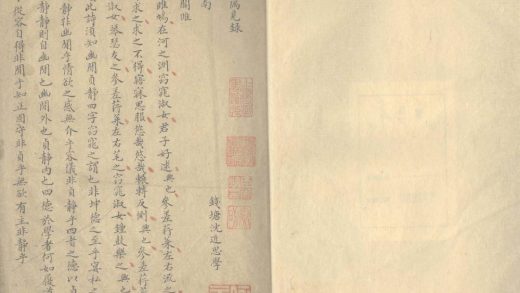 偶見錄
錢塘沈近思學
南
關雎
雎鳩在河之洲窈窕淑女君子好逑興也參差荇菜左右流之
求之求之不得寤寐思服悠哉悠哉輾轉反側興也參差荇
淑女琴瑟友之參差荇菜左右芼之窈窕淑女鐘鼓樂之興也
此詩須知幽閒貞靜四字窈窕之謂也非坤德之至乎宴私之
靜非幽閒乎情欲之感無介乎容儀非貞靜乎四者之德以貞
靜靜則自幽閒也幽閒外也貞靜內也四德於學者何如
從容自得非閒乎知正固守非貞乎無欲有主非靜乎